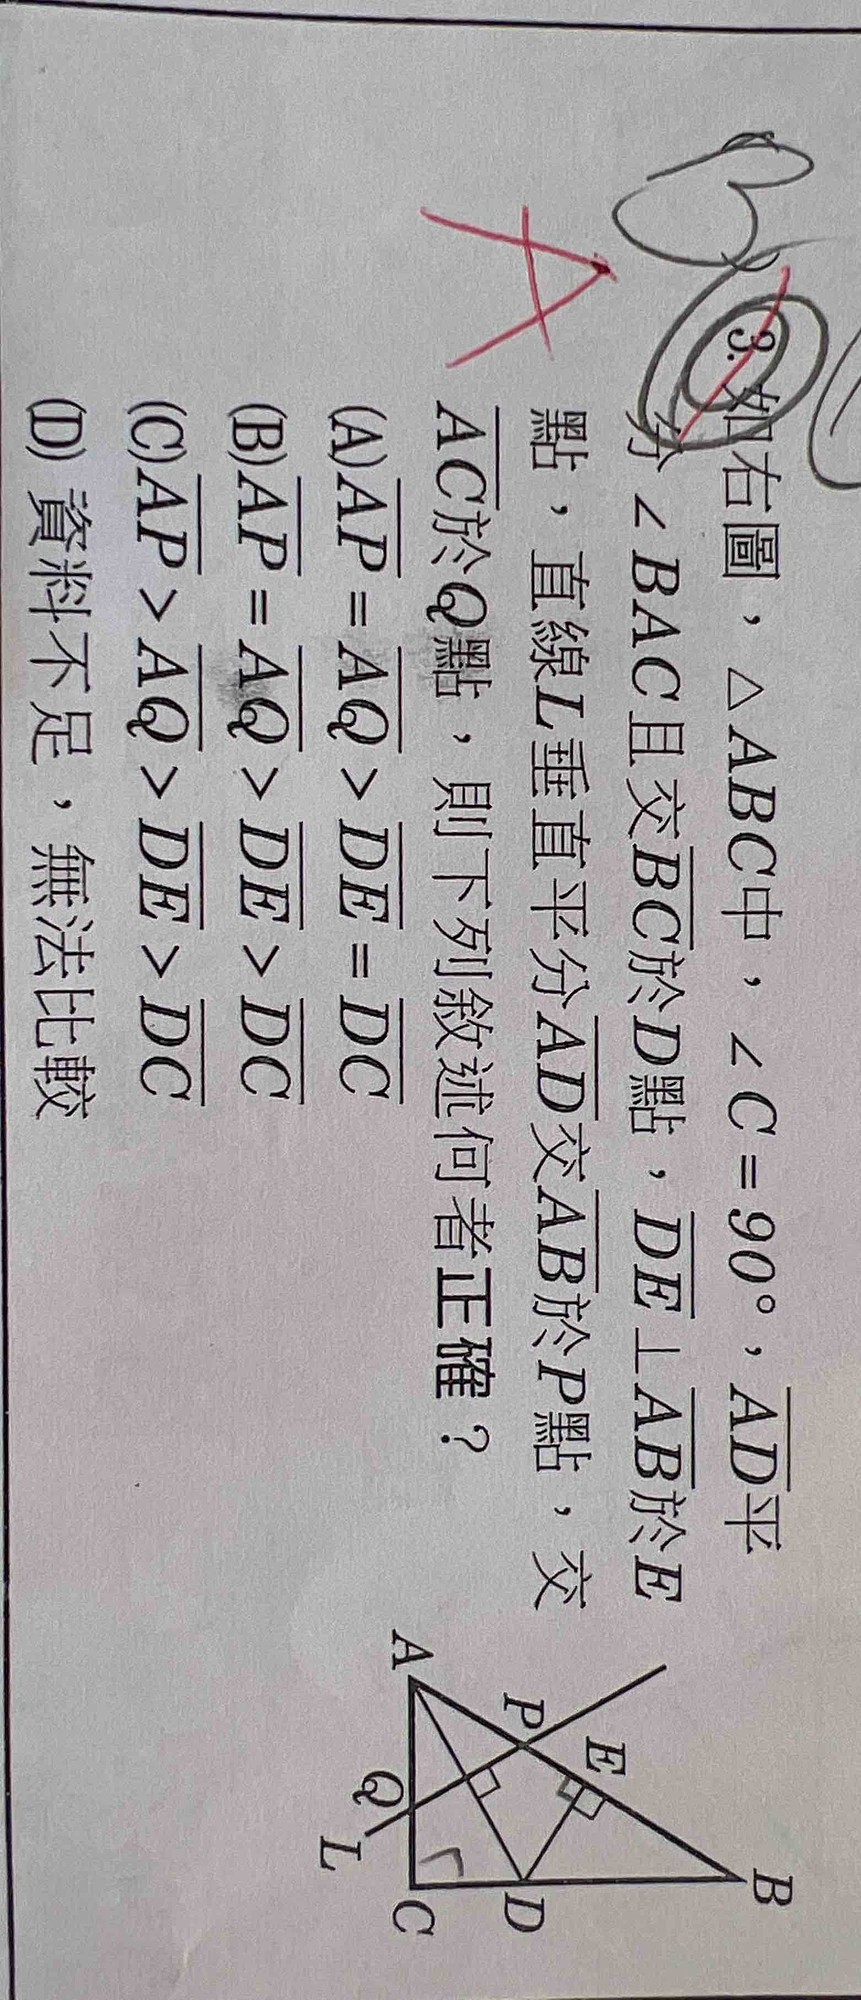 B
A
3. 如右圖，△ABC中，∠C = 90°，AD平
分∠BAC且交BC於D點，DE⊥AB於E
點，直線L垂直平分AD交AB於P點，交
AC於Q點，則下列敘述何者正確？
(A) AP = AQ > DE = DC
(B) AP = AQ > DE > DC
(C) AP > AQ > DE > DC
(D) 資料不足，無法比較
B
E
P
D
A
Q
C
L